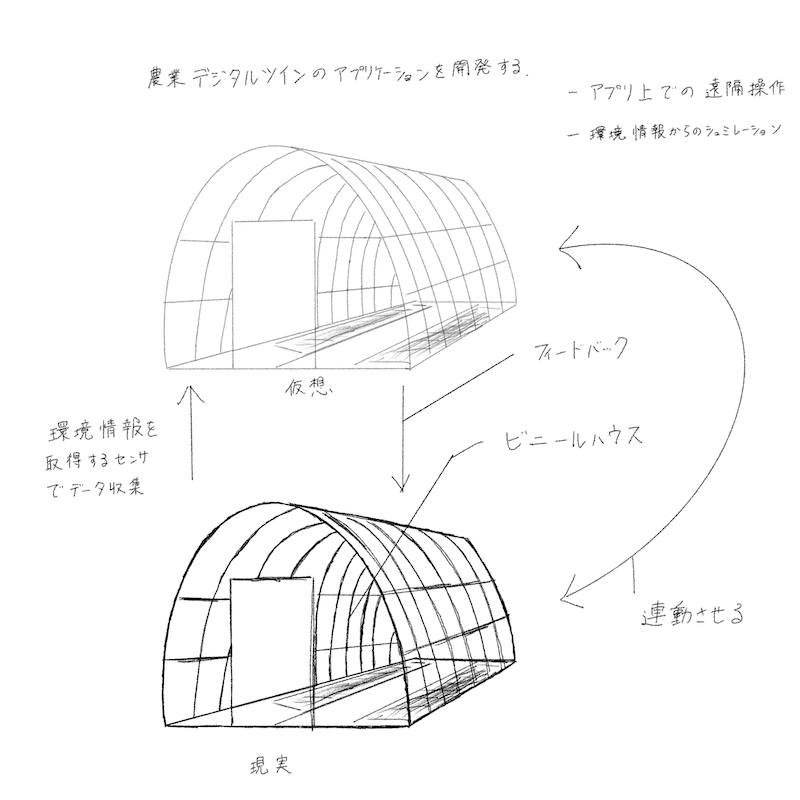 農業デジタルツインのアプリケーションを開発する.
- アプリ上での遠隔操作
- 環境情報からのシュミレーション
仮想
フィードバック
環境情報を
取得するセンサ
でデータ収集
ビニールハウス
連動させる
現実